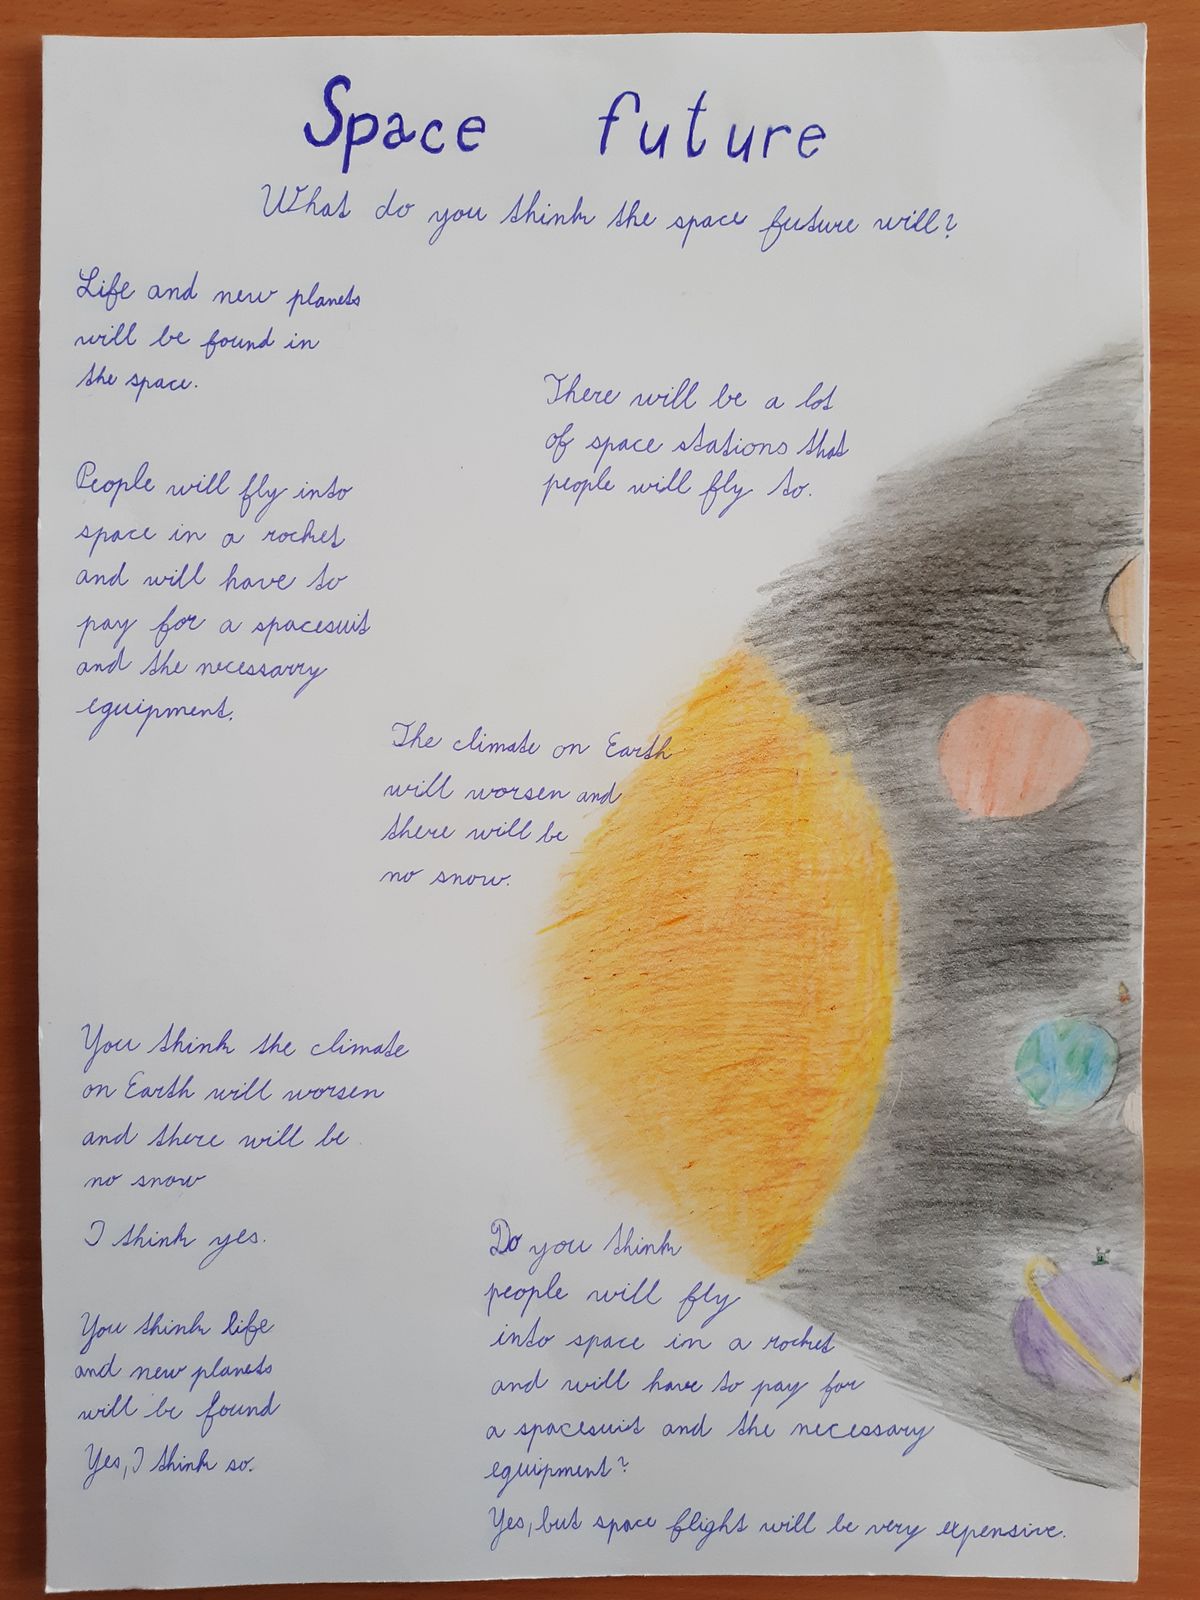 Space future
What do you think the space future will?
Life and new planets
will be found in
the space.
There will be a lot
of space stations that
people will fly to.
People will fly into
space in a rocket
and will have to
pay for a spacesuit
and the necessarry
equipment.
The climate on Earth
will worsen and
there will be
no snow.
You think the climate
on Earth will worsen
and there will be
no snow
I think yes.
You think life
and new planets
will be found
Yes, I think so.
Do you think
people will fly
into space in a rocket
and will have to pay for
a spacesuit and the necessary
equipment?
Yes, but space flight will be very expensive.